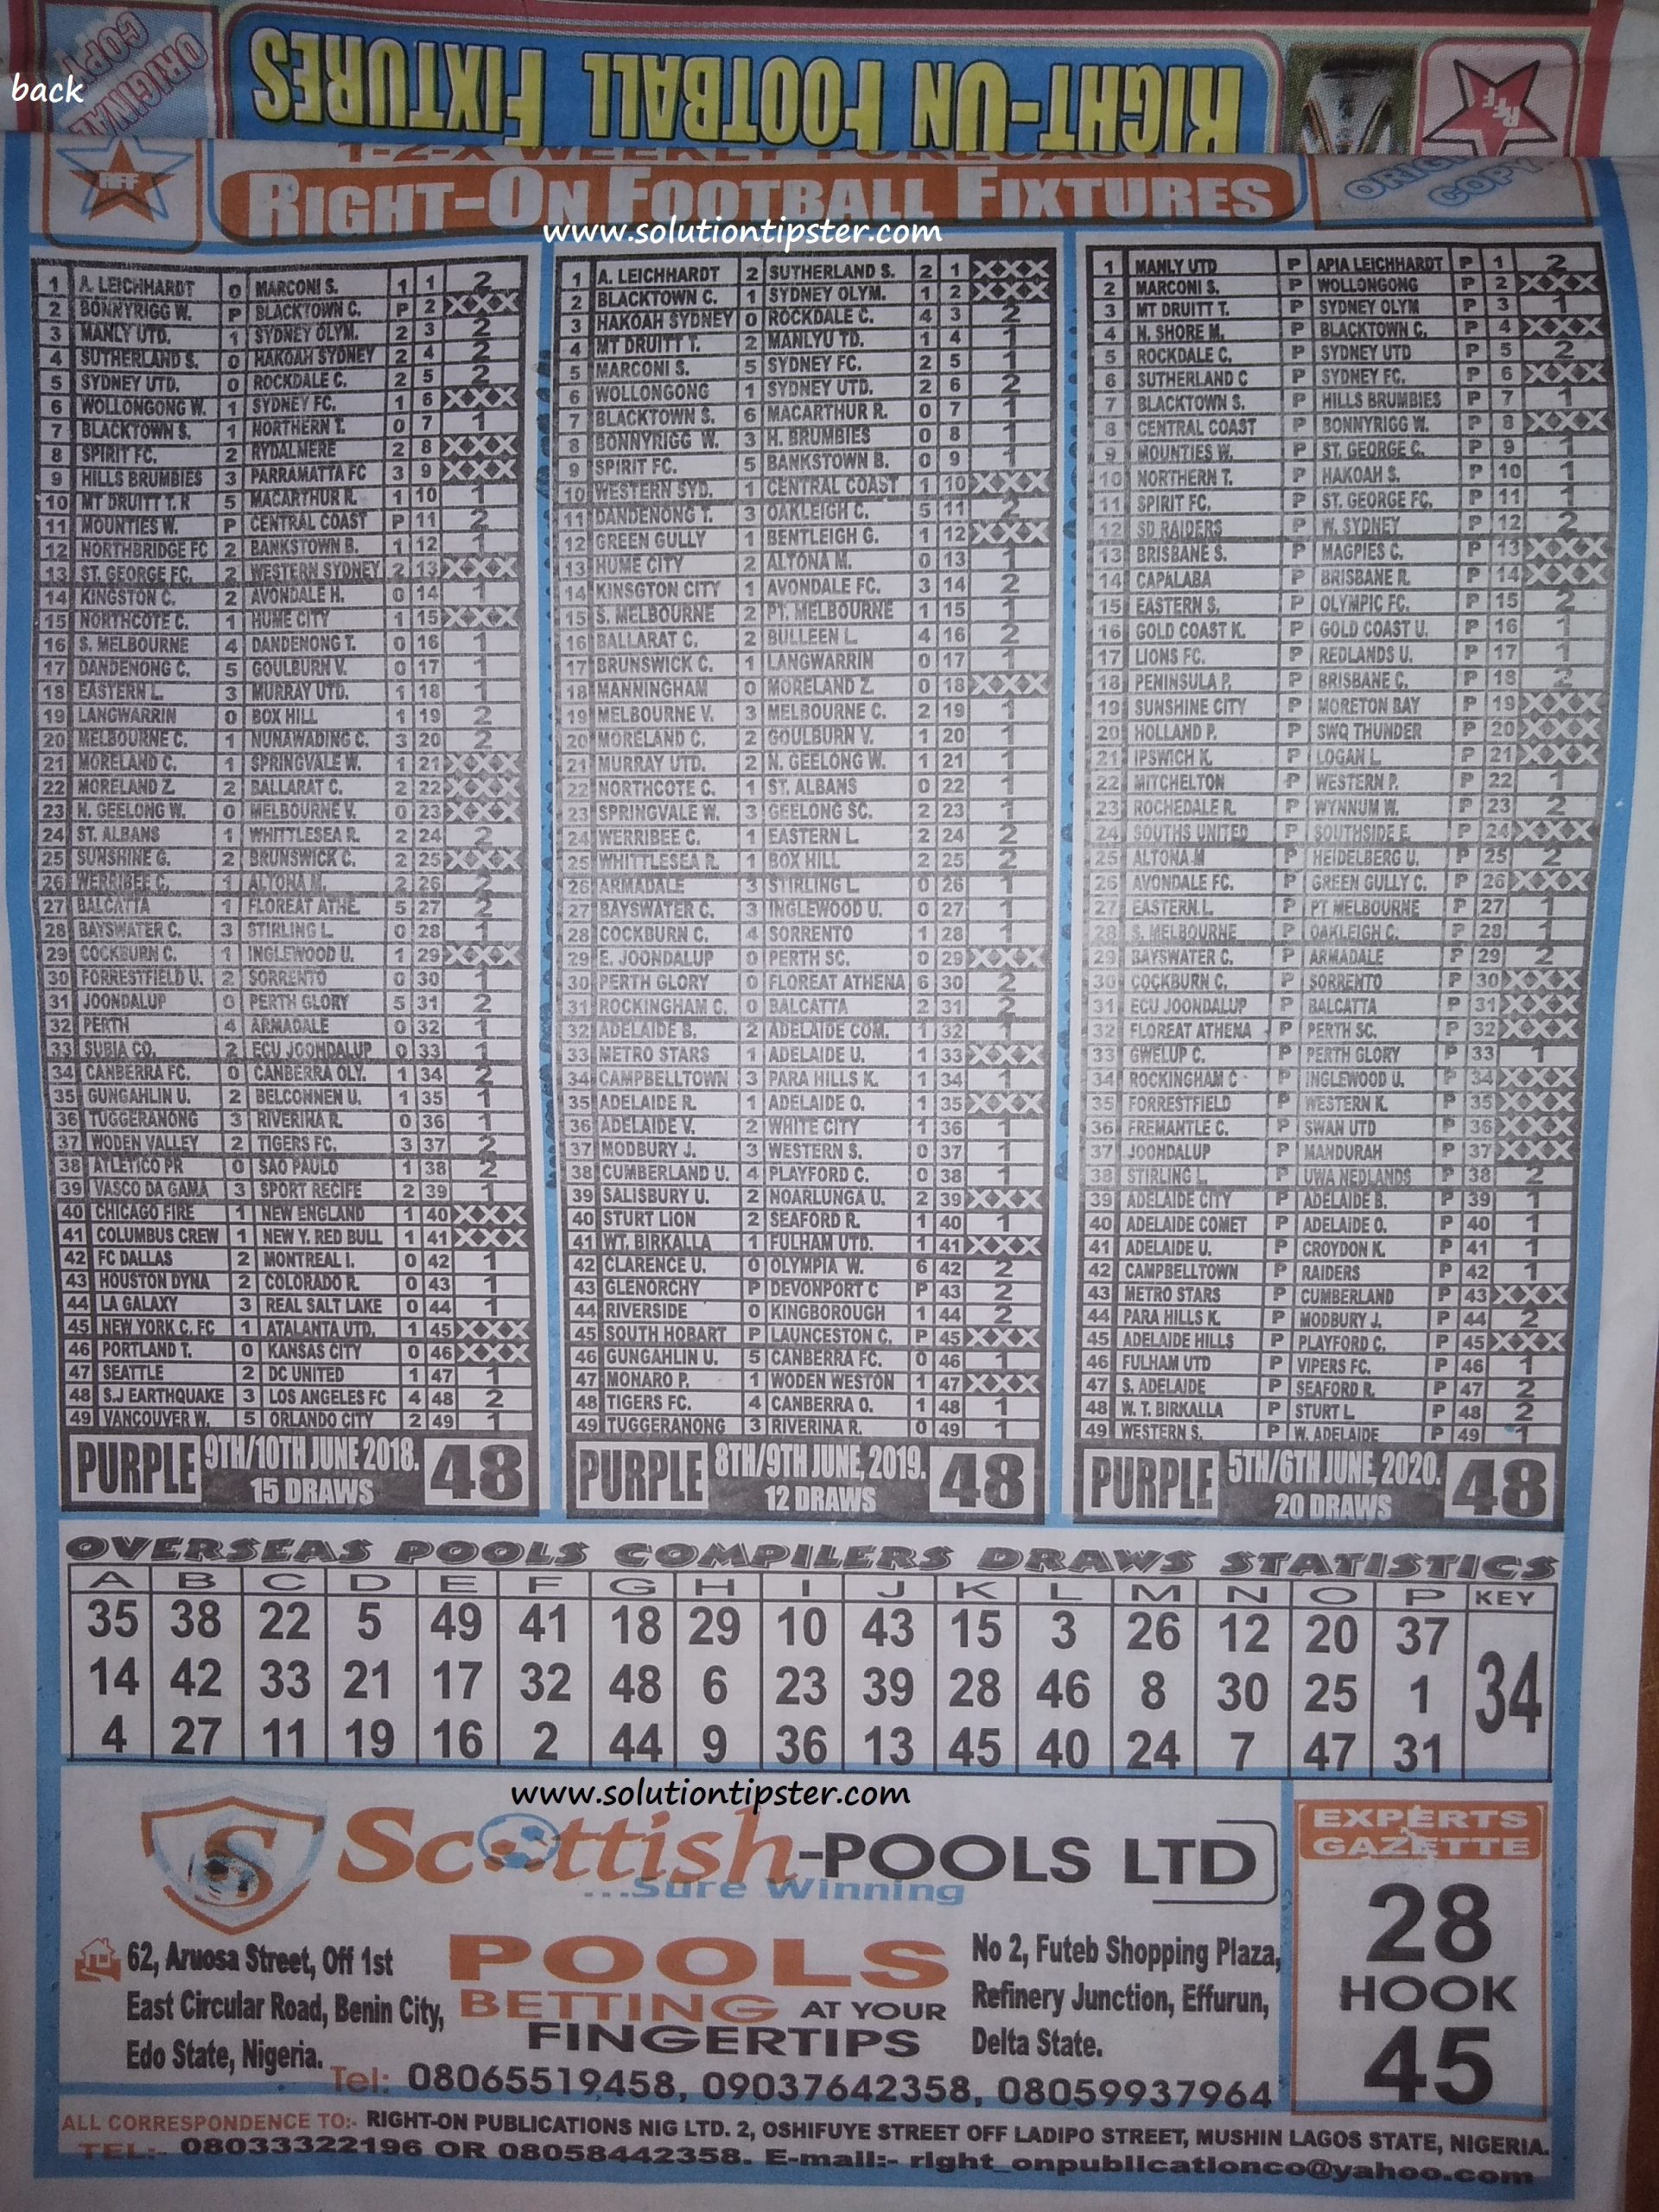 back
ORIGINAL COPY
RIGHT-ON FOOTBALL FIXTURES
RFF
1-2-X WEEKLY FORECAST
RFF
RIGHT-ON FOOTBALL FIXTURES
COPY
www.solutiontipster.com
1 A. LEICHHARDT 0 MARCONI S. 1 1 2
2 BONNYRIGG W. P BLACKTOWN C. P 2 XXX
3 MANLY UTD. 1 SYDNEY OLYM. 2 3 2
4 SUTHERLAND S. 0 HAKOAH SYDNEY 2 4 2
5 SYDNEY UTD. 0 ROCKDALE C. 2 5 2
6 WOLLONGONG W. 1 SYDNEY FC. 1 6 XXX
7 BLACKTOWN S. 1 NORTHERN T. 0 7 1
8 SPIRIT FC. 2 RYDALMERE 2 8 XXX
9 HILLS BRUMBIES 3 PARRAMATTA FC 3 9 XXX
10 MT DRUITT T. R 5 MACARTHUR R. 1 10 1
11 MOUNTIES W. P CENTRAL COAST P 11 2
12 NORTHBRIDGE FC 2 BANKSTOWN B. 1 12 1
13 ST. GEORGE FC. 2 WESTERN SYDNEY 2 13 XXX
14 KINGSTON C. 2 AVONDALE H. 0 14 1
15 NORTHCOTE C. 1 HUME CITY 1 15 XXX
16 S. MELBOURNE 4 DANDENONG T. 0 16 1
17 DANDENONG C. 5 GOULBURN V. 0 17 1
18 EASTERN L. 3 MURRAY UTD. 1 18 1
19 LANGWARRIN 0 BOX HILL 1 19 2
20 MELBOURNE C. 1 NUNAWADING C. 3 20 2
21 MORELAND C. 1 SPRINGVALE W. 1 21 XXX
22 MORELAND Z. 2 BALLARAT C. 2 22 XXX
23 N. GEELONG W. 0 MELBOURNE V. 0 23 XXX
24 ST. ALBANS 1 WHITTLESEA R. 2 24 2
25 SUNSHINE G. 2 BRUNSWICK C. 2 25 XXX
26 WERRIBEE C. 1 ALTONA M. 2 26 2
27 BALCATTA 1 FLOREAT ATHE. 5 27 2
28 BAYSWATER C. 3 STIRLING L. 0 28 1
29 COCKBURN C. 1 INGLEWOOD U. 1 29 XXX
30 FORRESTFIELD U. 2 SORRENTO 0 30 1
31 JOONDALUP 0 PERTH GLORY 5 31 2
32 PERTH 4 ARMADALE 0 32 1
33 SUBIA CO. 2 ECU JOONDALUP 0 33 1
34 CANBERRA FC. 0 CANBERRA OLY. 1 34 2
35 GUNGAHLIN U. 2 BELCONNEN U. 1 35 1
36 TUGGERANONG 3 RIVERINA R. 0 36 1
37 WODEN VALLEY 2 TIGERS FC. 3 37 2
38 ATLETICO PR 0 SAO PAULO 1 38 2
39 VASCO DA GAMA 3 SPORT RECIFE 2 39 1
40 CHICAGO FIRE 1 NEW ENGLAND 1 40 XXX
41 COLUMBUS CREW 1 NEW Y. RED BULL 1 41 XXX
42 FC DALLAS 2 MONTREAL I. 0 42 1
43 HOUSTON DYNA 2 COLORADO R. 0 43 1
44 LA GALAXY 3 REAL SALT LAKE 0 44 1
45 NEW YORK C. FC 1 ATALANTA UTD. 1 45 XXX
46 PORTLAND T. 0 KANSAS CITY 0 46 XXX
47 SEATTLE 2 DC UNITED 1 47 1
48 S.J EARTHQUAKE 3 LOS ANGELES FC 4 48 2
49 VANCOUVER W. 5 ORLANDO CITY 2 49 1
PURPLE 9TH/10TH JUNE 2018. 48
15 DRAWS
1 A. LEICHHARDT 2 SUTHERLAND S. 2 1 XXX
2 BLACKTOWN C. 1 SYDNEY OLYM. 1 2 XXX
3 HAKOAH SYDNEY 0 ROCKDALE C. 4 3 2
4 MT DRUITT T. 2 MANLYU TD. 1 4 1
5 MARCONI S. 5 SYDNEY FC. 2 5 1
6 WOLLONGONG 1 SYDNEY UTD. 2 6 2
7 BLACKTOWN S. 6 MACARTHUR R. 0 7 1
8 BONNYRIGG W. 3 H. BRUMBIES 0 8 1
9 SPIRIT FC. 5 BANKSTOWN B. 0 9 1
10 WESTERN SYD. 1 CENTRAL COAST 1 10 XXX
11 DANDENONG T. 3 OAKLEIGH C. 5 11 2
12 GREEN GULLY 1 BENTLEIGH G. 1 12 XXX
13 HUME CITY 2 ALTONA M. 0 13 1
14 KINSGTON CITY 1 AVONDALE FC. 3 14 2
15 S. MELBOURNE 2 PT. MELBOURNE 1 15 1
16 BALLARAT C. 2 BULLEEN L. 4 16 2
17 BRUNSWICK C. 1 LANGWARRIN 0 17 1
18 MANNINGHAM 0 MORELAND Z. 0 18 XXX
19 MELBOURNE V. 3 MELBOURNE C. 2 19 1
20 MORELAND C. 2 GOULBURN V. 1 20 1
21 MURRAY UTD. 2 N. GEELONG W. 1 21 1
22 NORTHCOTE C. 1 ST. ALBANS 0 22 1
23 SPRINGVALE W. 3 GEELONG SC. 2 23 1
24 WERRIBEE C. 1 EASTERN L. 2 24 2
25 WHITTLESEA R. 1 BOX HILL 2 25 2
26 ARMADALE 3 STIRLING L. 0 26 1
27 BAYSWATER C. 3 INGLEWOOD U. 0 27 1
28 COCKBURN C. 4 SORRENTO 1 28 1
29 E. JOONDALUP 0 PERTH SC. 0 29 XXX
30 PERTH GLORY 0 FLOREAT ATHENA 6 30 2
31 ROCKINGHAM C. 0 BALCATTA 2 31 2
32 ADELAIDE B. 2 ADELAIDE COM. 1 32 1
33 METRO STARS 1 ADELAIDE U. 1 33 XXX
34 CAMPBELLTOWN 3 PARA HILLS K. 1 34 1
35 ADELAIDE R. 1 ADELAIDE O. 1 35 XXX
36 ADELAIDE V. 2 WHITE CITY 1 36 1
37 MODBURY J. 3 WESTERN S. 0 37 1
38 CUMBERLAND U. 4 PLAYFORD C. 0 38 1
39 SALISBURY U. 2 NOARLUNGA U. 2 39 XXX
40 STURT LION 2 SEAFORD R. 1 40 1
41 WT. BIRKALLA 1 FULHAM UTD. 1 41 XXX
42 CLARENCE U. 0 OLYMPIA W. 6 42 2
43 GLENORCHY P DEVONPORT C P 43 2
44 RIVERSIDE 0 KINGBOROUGH 1 44 2
45 SOUTH HOBART P LAUNCESTON C. P 45 XXX
46 GUNGAHLIN U. 5 CANBERRA FC. 0 46 1
47 MONARO P. 1 WODEN WESTON 1 47 XXX
48 TIGERS FC. 4 CANBERRA O. 1 48 1
49 TUGGERANONG 3 RIVERINA R. 0 49 1
PURPLE 8TH/9TH JUNE, 2019. 48
12 DRAWS
1 MANLY UTD P APIA LEICHHARDT P 1 2
2 MARCONI S. P WOLLONGONG P 2 XXX
3 MT DRUITT T. P SYDNEY OLYM P 3 1
4 N. SHORE M. P BLACKTOWN C, P 4 XXX
5 ROCKDALE C. P SYDNEY UTD P 5 2
6 SUTHERLAND C P SYDNEY FC. P 6 XXX
7 BLACKTOWN S. P HILLS BRUMBIES P 7 1
8 CENTRAL COAST P BONNYRIGG W. P 8 XXX
9 MOUNTIES W. P ST. GEORGE C. P 9 1
10 NORTHERN T. P HAKOAH S. P 10 1
11 SPIRIT FC. P ST. GEORGE FC, P 11 1
12 SD RAIDERS P W. SYDNEY P 12 2
13 BRISBANE S. P MAGPIES C. P 13 XXX
14 CAPALABA P BRISBANE R. P 14 XXX
15 EASTERN S. P OLYMPIC FC. P 15 2
16 GOLD COAST K. P GOLD COAST U. P 16 1
17 LIONS FC. P REDLANDS U. P 17 1
18 PENINSULA P. P BRISBANE C. P 18 2
19 SUNSHINE CITY P MORETON BAY P 19 XXX
20 HOLLAND P. P SWQ THUNDER P 20 XXX
21 IPSWICH K. P LOGAN L. P 21 XXX
22 MITCHELTON P WESTERN P. P 22 1
23 ROCHEDALE R. P WYNNUM W. P 23 2
24 SOUTHS UNITED P SOUTHSIDE E. P 24 XXX
25 ALTONA M P HEIDELBERG U. P 25 2
26 AVONDALE FC. P GREEN GULLY C. P 26 XXX
27 EASTERN.L P PT MELBOURNE P 27 1
28 S. MELBOURNE P OAKLEIGH C. P 28 1
29 BAYSWATER C. P ARMADALE P 29 2
30 COCKBURN C. P SORRENTO P 30 XXX
31 ECU JOONDALUP P BALCATTA P 31 XXX
32 FLOREAT ATHENA P PERTH SC. P 32 XXX
33 GWELUP C. P PERTH GLORY P 33 1
34 ROCKINGHAM C P INGLEWOOD U. P 34 XXX
35 FORRESTFIELD P WESTERN K. P 35 XXX
36 FREMANTLE C. P SWAN UTD P 36 XXX
37 JOONDALUP P MANDURAH P 37 XXX
38 STIRLING L. P UWA NEDLANDS P 38 2
39 ADELAIDE CITY P ADELAIDE B. P 39 1
40 ADELAIDE COMET P ADELAIDE O. P 40 1
41 ADELAIDE U. P CROYDON K. P 41 1
42 CAMPBELLTOWN P RAIDERS P 42 1
43 METRO STARS P CUMBERLAND P 43 XXX
44 PARA HILLS K. P MODBURY J. P 44 2
45 ADELAIDE HILLS P PLAYFORD C. P 45 XXX
46 FULHAM UTD P VIPERS FC. P 46 1
47 S. ADELAIDE P SEAFORD R. P 47 2
48 W. T. BIRKALLA P STURT L P 48 2
49 WESTERN S. P W. ADELAIDE P 49 1
PURPLE 5TH/6TH JUNE, 2020. 48
20 DRAWS
OVERSEAS POOLS COMPILERS DRAWS STATISTICS
A B C D E F G H I J K L M N O P KEY
35 38 22 5 49 41 18 29 10 43 15 3 26 12 20 37
14 42 33 21 17 32 48 6 23 39 28 46 8 30 25 1 34
4 27 11 19 16 2 44 9 36 13 45 40 24 7 47 31
www.solutiontipster.com
Scottish-POOLS LTD
...Sure Winning
62, Aruosa Street, Off 1st
East Circular Road, Benin City,
Edo State, Nigeria.
POOLS
BETTING AT YOUR
FINGERTIPS
No 2, Futeb Shopping Plaza,
Refinery Junction, Effurun,
Delta State.
Tel: 08065519458, 09037642358, 08059937964
EXPERTS
GAZETTE
28
HOOK
45
ALL CORRESPONDENCE TO:- RIGHT-ON PUBLICATIONS NIG LTD. 2, OSHIFUYE STREET OFF LADIPO STREET, MUSHIN LAGOS STATE, NIGERIA.
TEL:- 08033322196 OR 08058442358. E-mail:- right_onpublicationco@yahoo.com